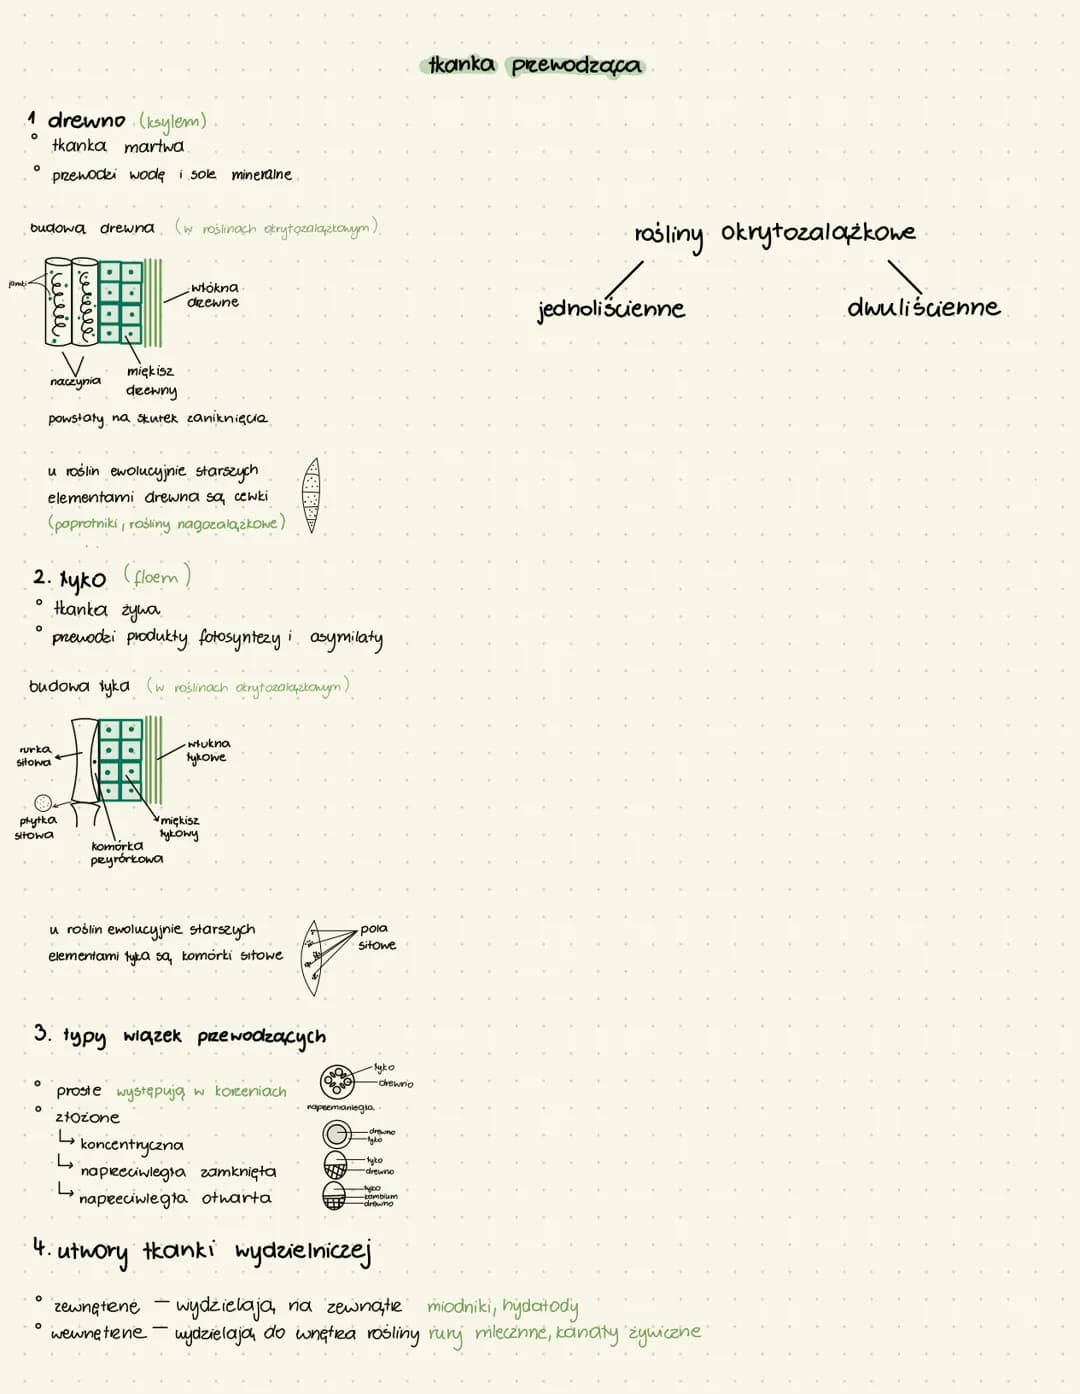 tkanka przewodząca
1 drewno (ksylem)
° tkanka martwa
° przewodzi wodę i sole mineralne
budowa drewna (w roślinach okrytozalążkowym)
jamki
włókna
drzewne
naczynia
miękisz
drzewny
powstały na skutek zaniknięcia
u roślin ewolucyjnie starszych
elementami drewna są cewki
(paprotniki, rośliny nagozalążkowe)
rośliny okrytozalążkowe
jednoliścienne
dwuliścienne
2. łyko (floem)
° tkanka żywa
° przewodzi produkty fotosyntezy i asymilaty
budowa łyka (w roślinach okrytozalążkowym)
rurka
sitowa
włukna
łykowe
płytka
sitowa
miękisz
łykowy
komórka
przyrórkowa
u roślin ewolucyjnie starszych
elementami łyka są komórki sitowe
pola
sitowe
3. typy wiązek przewodzących
° proste występują w korzeniach
łyko
drewnio
naprzemianległa
° złożone
↳ koncentryczna
drewno
łyko
↳ naprzeciwległa zamknięta
łyko
drewno
↳ naprzeciwległa otwarta
łyko
kambium
drewno
4. utwory tkanki wydzielniczej
° zewnętrzne — wydzielają na zewnątrz miodniki, hydatody
° wewnętrzne — wydzielają do wnętrza rośliny rury mlecznne, kanały żywiczne